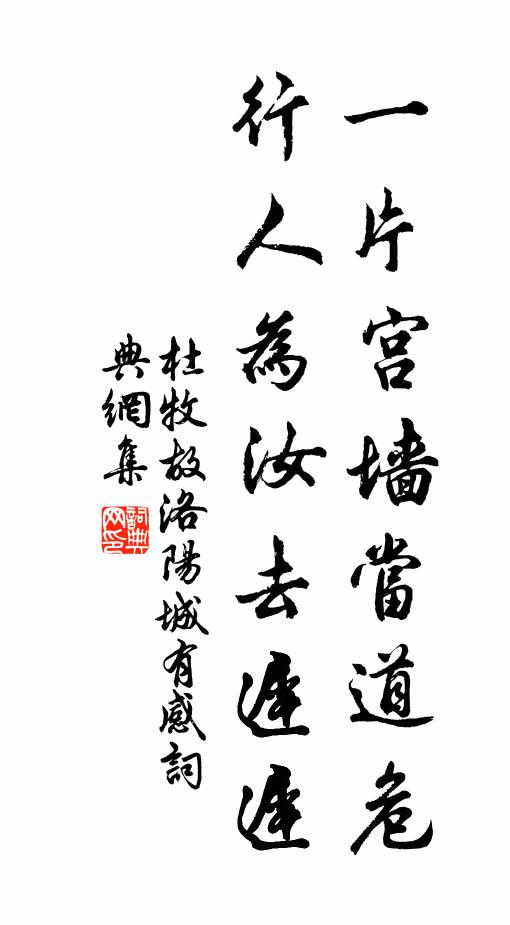 一片宫墙當道危
行人為汝去遲遲
杜牧故洛陽城有感詞
典網集
詞典网印